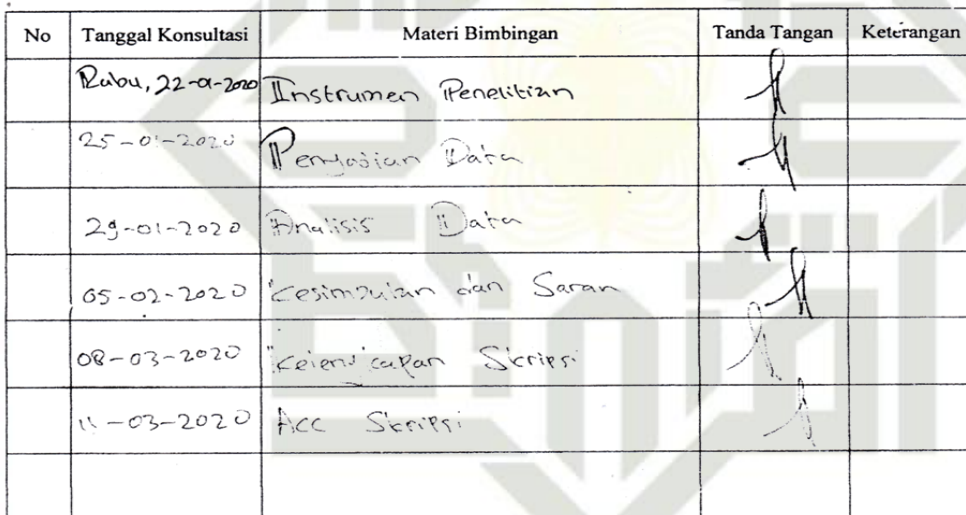 No Tanggal Konsultasi Materi Bimbingan Tanda Tangan Keterangan
Rabu, 22-01-2020 Instrumen Penelitian
25-01-2020 Penyajian Data
29-01-2020 Analisis Data
05-02-2020 Kesimpulan dan Saran
08-03-2020 Kelengkapan Skripsi
11-03-2020 Acc Skripsi